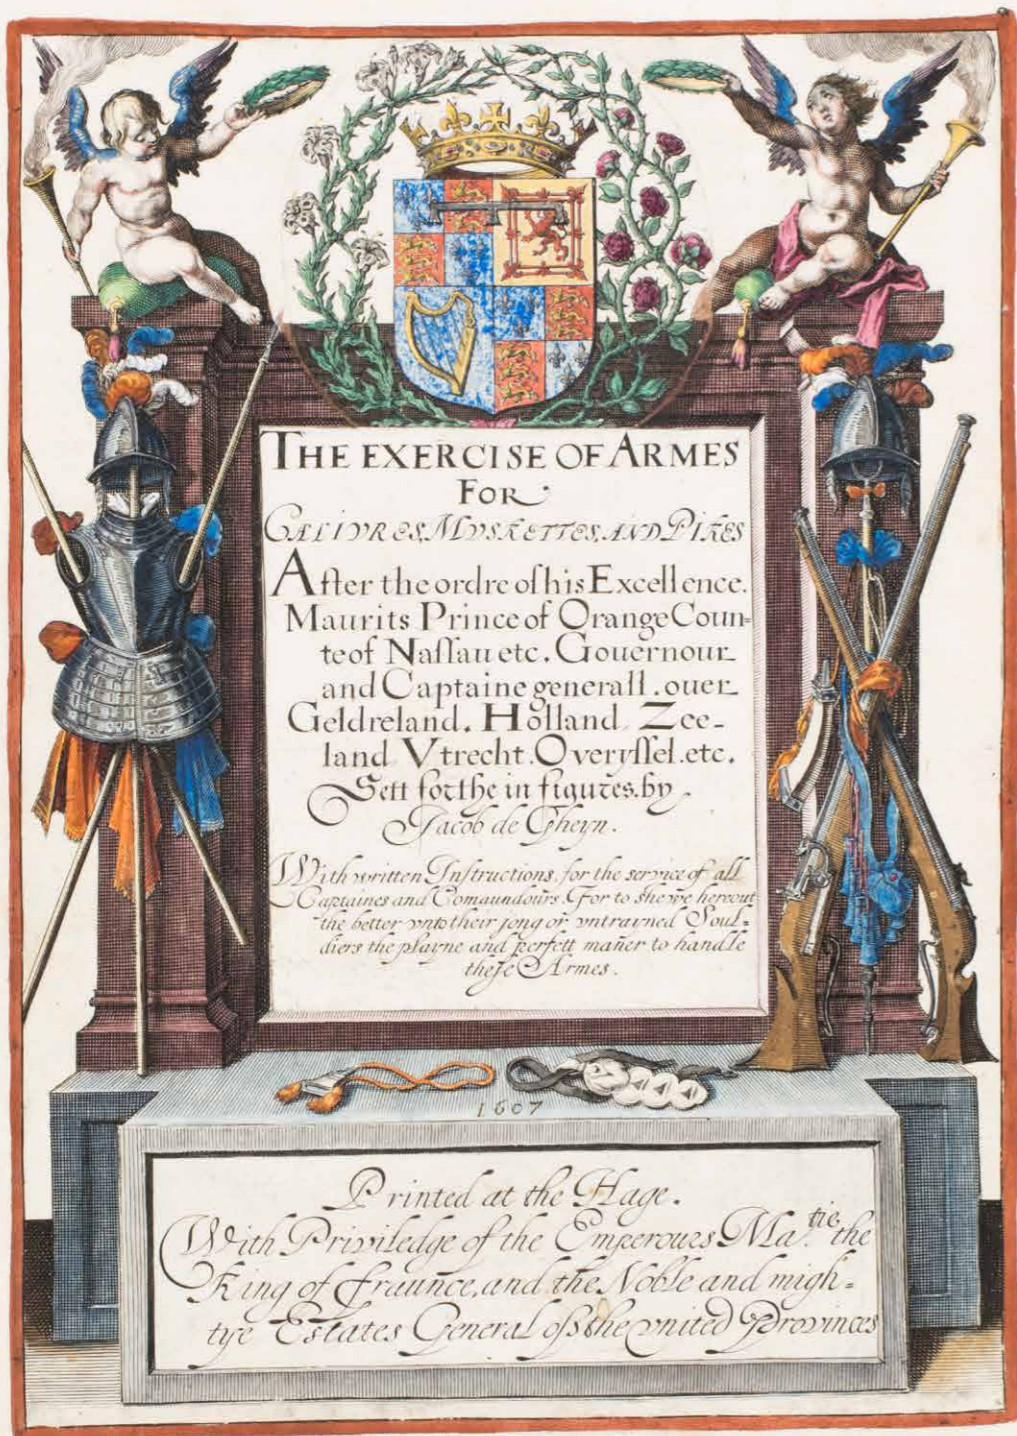 THE EXERCISE OF ARMES
FOR
CALIVRES, MVSKETTES, AND PIKES
After the ordre of his Excellence.
Maurits Prince of Orange Coun=
te of Naſſau etc. Gouernour
and Captaine generall . ouer
Geldreland. Holland Zee-
land Vtrecht. Overyſſel. etc.
Sett forthe in figures. by
Jacob de Gheyn.
With written Instructions, for the service of all
Captaines and Comaundours. For to shewe hereout
the better vnto their jong or vntrayned Soul=
diers the playne and perfett maner to handle
theſe Armes.
1607
Printed at the Hage.
With Priviledge of the Emperours Ma.tie the
King of fraunce, and the Noble and migh=
tye Estates General of the vnited Provinces